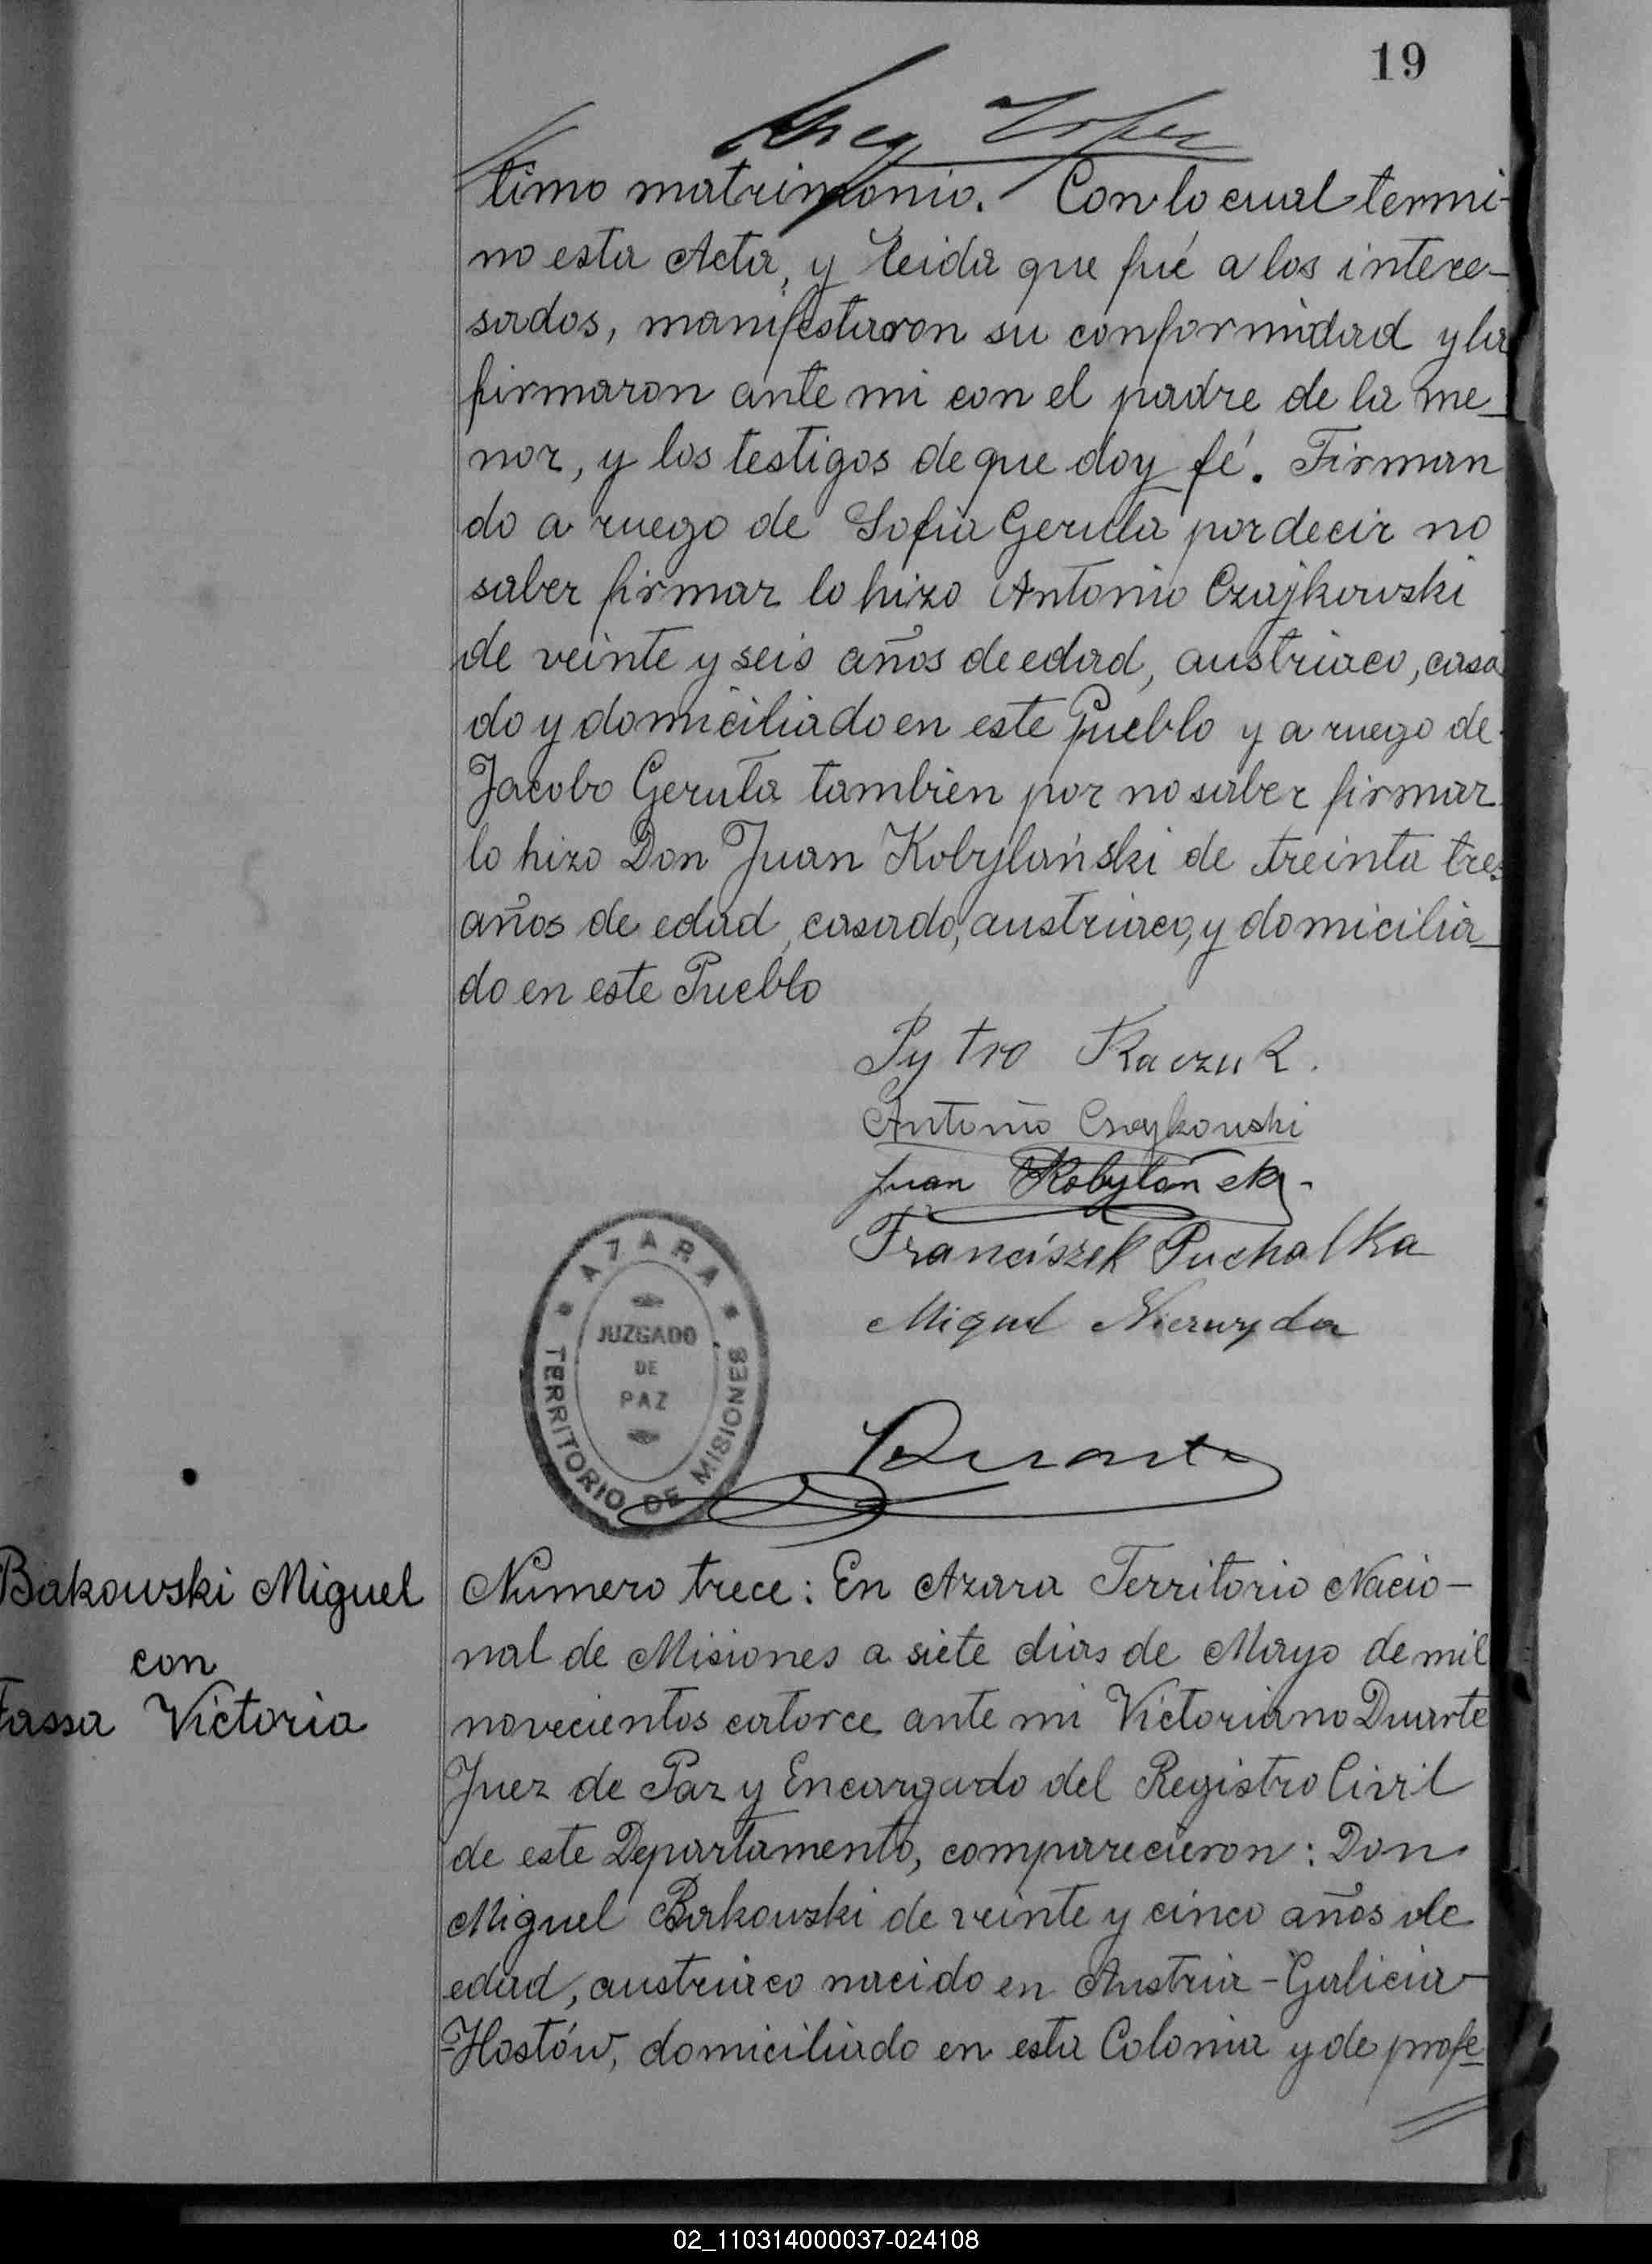 19
timo matrimonio. Con lo cual termi-
no esta Acta, y leida que fué a los intere-
sados, manifestaron su conformidad y la
firmaron ante mi con el padre de la me-
nor, y los testigos de que doy fé. Firman
do a ruego de Sofia Geruta por decir no
saber firmar lo hizo Antonio Czajkowski
de veinte y seis años de edad, austriaco, casa
do y domiciliado en este Pueblo y a ruego de
Jacobo Geruta tambien por no saber firmar
lo hizo Don Juan Kobylański de treinta tres
años de edad, casado, austriaco, y domicilia-
do en este Pueblo
Pytro Kaczuk.
Antonio Czajkowski
Juan Kobylański
Franciszek Puchalka
Miguel
AZARA
JUZGADO
DE
PAZ
TERRITORIO DE MISIONES
VDuarte
Bakowski Miguel
con
Tassa Victoria
Numero trece: En Azara Territorio Nacio-
nal de Misiones a siete dias de Mayo de mil
novecientos catorce ante mi Victoriano Duarte
Juez de Paz y Encargado del Registro Civil
de este Departamento, comparecieron: Don
Miguel Bakowski de veinte y cinco años de
edad, austriaco nacido en Austria-Galicia-
-Hostów, domiciliado en esta Colonia y de profe
02_110314000037-024108